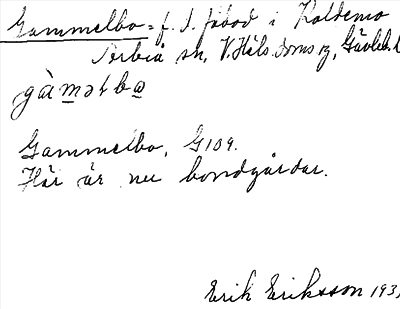 Gammelbo = f. d. fäbod i Koldemo
Järbo sn, V. Häls. doms. 19, Gävleb. l
gàmǝlbo
Gammelbo, G109.
Här är nu bondgårdar.
Erik Eriksson 193